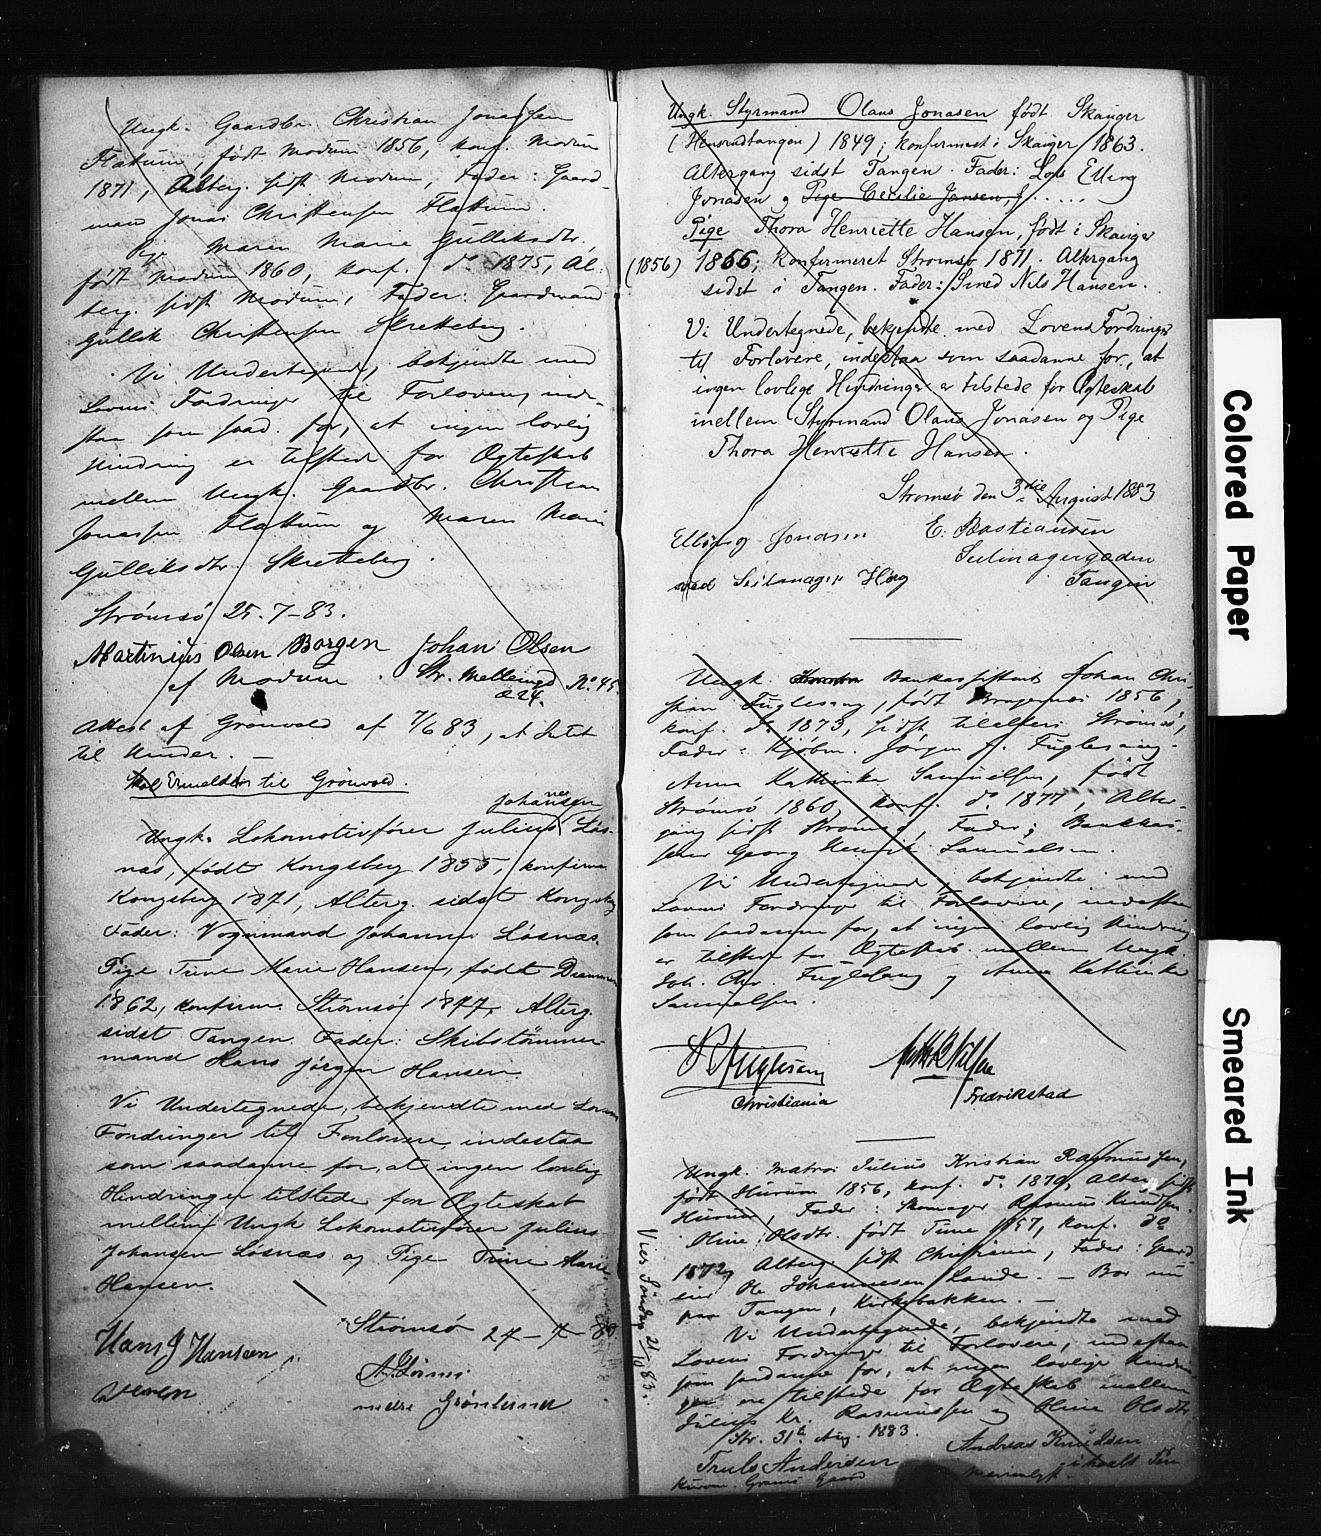 Ungk. Gaardbr. Christian Jonassen
Flattum, født Modum 1856, konf. Modum
1871, Alterg. sidst Modum, Fader: Gaard-
mand Jonas Christensen Flattum.
Pige Maren Marie Gulliksdtr.,
født Modum 1860, konf. do 1875, Al-
terg. sidst Modum, Fader: Gaardmand
Gullik Christensen Skretteberg.
Vi Undertegnede, bekjendte med
Lovens Fordringer til Forlovere, inde-
staa som saad. for, at ingen lovlig
Hindring er tilstede for Ægteskab
mellem Ungk. Gaardbr. Christian
Jonassen Flattum og Maren Marie
Gulliksdtr. Skretteberg.
Strømsø 25-7-83.
Martinius Olsen Borgen Johan Olsen
af Modum. Str. No 45.
224.
Attest af Grønvold af 7/6 83, at Intet
til Hinder. —
Skal til Grønvold.
Johansen
Ungk. Lokomotivfører Julius Løs-
nas, født Kongsberg 1855, konfirm.
Kongsberg 1871, Alterg. sidst Kongsberg
Fader: Vognmand Johannes Løsnæs.
Pige Trine Marie Hansen, født Drammen
1862, konfirm. Strømsø 1877, Alterg.
sidst Tangen. Fader: Skibstømmer-
mand Hans Jørgen Hansen.
Vi Undertegnede, bekjendte med Lovens
Fordringer til Forlovere, indestaa
som saadanne for, at ingen lovlig
Hindringer tilstede for Ægteskab
mellem Ungk Lokomotivfører Julius
Johansen Løsnæs og Pige Trine Marie
Hansen.
Strømsø 27-7-83
Hans J Hansen
nedre Grønland
Ungk. Styrmand Olaus Jonasen født Skauger
(Hernestangen) 1849; konfirmert i Skauger 1863.
Altergang sidst Tangen. Fader: Lods Elling
Jonasen og Pige Cecilie Jansen, f.....
Pige Thora Henriette Hansen, født i Skauger
(1856) 1866; konfirmeret Strømsø 1871. Altergang
sidst i Tangen. Fader: Smed Nils Hansen.
Vi Undertegnede, bekjendte med Lovens Fordringer
til Forlovere, indestaa som saadanne for, at
ingen lovlige Hindringer er tilstede for Ægteskab
mellem Styrmand Olaus Jonasen og Pige
Thora Henriette Hansen.
Strømsø den 3die August 1883
Elling Jonasen E. Bastiansen
ved Seilmager Høeg Seilmagergaden
Tangen
Ungk. Bankassistent Johan Chri-
stian Fuglesang, født Bragernæs 1856,
konf. do 1873, sidst tilalters Strømsø,
Fader: Kjøbm. Jørgen J. Fuglesang.
Anna Kathinka Samuelsen, født
Strømsø 1860, konf. do 1877, Alter-
gang sidst Strømsø, Fader: Bankkas-
serer Georg Henrik Samuelsen.
Vi Undertegnede, bekjendte med
Lovens Fordringer til Forlovere, indestaa
som saadanne for, at ingen lovlig Hindring
er tilstede for Ægteskab mellem Ungk.
Joh. Chr. Fuglesang og Anna Kathinka
Samuelsen.
Fuglesang
Christiania Fredrikstad
Ungk. Matros Julius Kristian Rasmussen,
født Hurum 1856, konf. do 1870, Alterg. sidst
Hurum, Fader: Skomager Rasmus Knudsen.
Oline Olsdtr. født 1857, konf. do
1872, Alterg. sidst Christiania, Fader: Gaard-
eier Ole Johannesen Lande. — Bor nu
paa Tangen, Kirkebakken. —
Vi Undertegnede, bekjendte med
Lovens Fordringer til Forlovere, indestaa
som saadanne for, at ingen lovlige Hindrin-
ger ere tilstede for Ægteskab mellem
Julius Kr. Rasmussen og Oline Olsdtr.
Str. 31te Aug. 1883.
Truls Andersen Andreas Knudsen
Vies Søndag 21/10 83.
Colored Paper
Smeared Ink